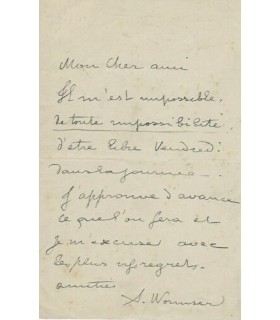 Mon cher ami
Il m'est impossible.
de toute impossibilité
d'être libre Vendredi
dans la journée -
J'approuve d'avance
ce que l'on fera et
Je m'excuse avec
les plus vifs regrets.
amitiés
A. Wormser